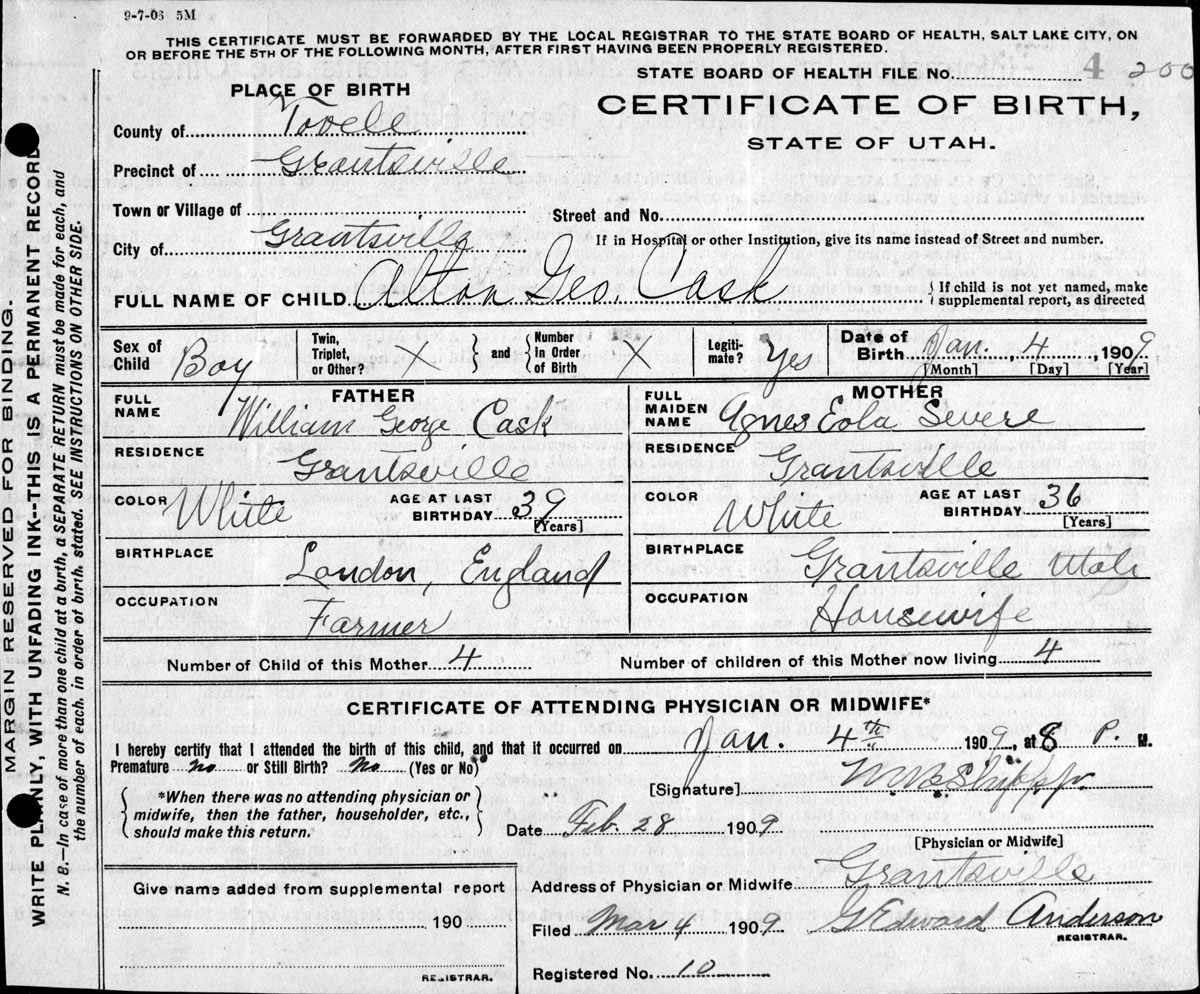 9-7-06 5M
THIS CERTIFICATE MUST BE FORWARDED BY THE LOCAL REGISTRAR TO THE STATE BOARD OF HEALTH, SALT LAKE CITY, ON
OR BEFORE THE 5TH OF THE FOLLOWING MONTH, AFTER FIRST HAVING BEEN PROPERLY REGISTERED.
STATE BOARD OF HEALTH FILE No. 4 200
PLACE OF BIRTH
CERTIFICATE OF BIRTH,
STATE OF UTAH.
County of Tooele
Precinct of Grantsville
Town or Village of
Street and No.
City of Grantsville
If in Hospital or other Institution, give its name instead of Street and number.
FULL NAME OF CHILD Alton Geo. Cask
If child is not yet named, make
supplemental report, as directed
Sex of Child Boy
Twin, Triplet, or Other? X
and
Number in Order of Birth X
Legiti-mate? Yes
Date of Birth Jan. 4 1909
[Month] [Day] [Year]
FATHER
FULL NAME William George Cask
RESIDENCE Grantsville
COLOR White
AGE AT LAST BIRTHDAY 39
[Years]
BIRTHPLACE London, England
OCCUPATION Farmer
MOTHER
FULL MAIDEN NAME Agnes Eola Severe
RESIDENCE Grantsville
COLOR White
AGE AT LAST BIRTHDAY 36
[Years]
BIRTHPLACE Grantsville Utah
OCCUPATION Housewife
Number of Child of this Mother 4
Number of children of this Mother now living 4
CERTIFICATE OF ATTENDING PHYSICIAN OR MIDWIFE*
I hereby certify that I attended the birth of this child, and that it occurred on Jan. 4th 1909, at 8 P. M.
Premature no or Still Birth? No (Yes or No)
*When there was no attending physician or
midwife, then the father, householder, etc.,
should make this return.
[Signature]
Date Feb. 28 1909
[Physician or Midwife]
Address of Physician or Midwife Grantsville
Give name added from supplemental report
190
REGISTRAR.
Filed Mar 4 1909
G Edward Anderson
REGISTRAR.
Registered No. 10
MARGIN RESERVED FOR BINDING.
WRITE PLAINLY, WITH UNFADING INK--THIS IS A PERMANENT RECORD
N. B.—In case of more than one child at a birth, a SEPARATE RETURN must be made for each, and
the number of each, in order of birth, stated. SEE INSTRUCTIONS ON OTHER SIDE.